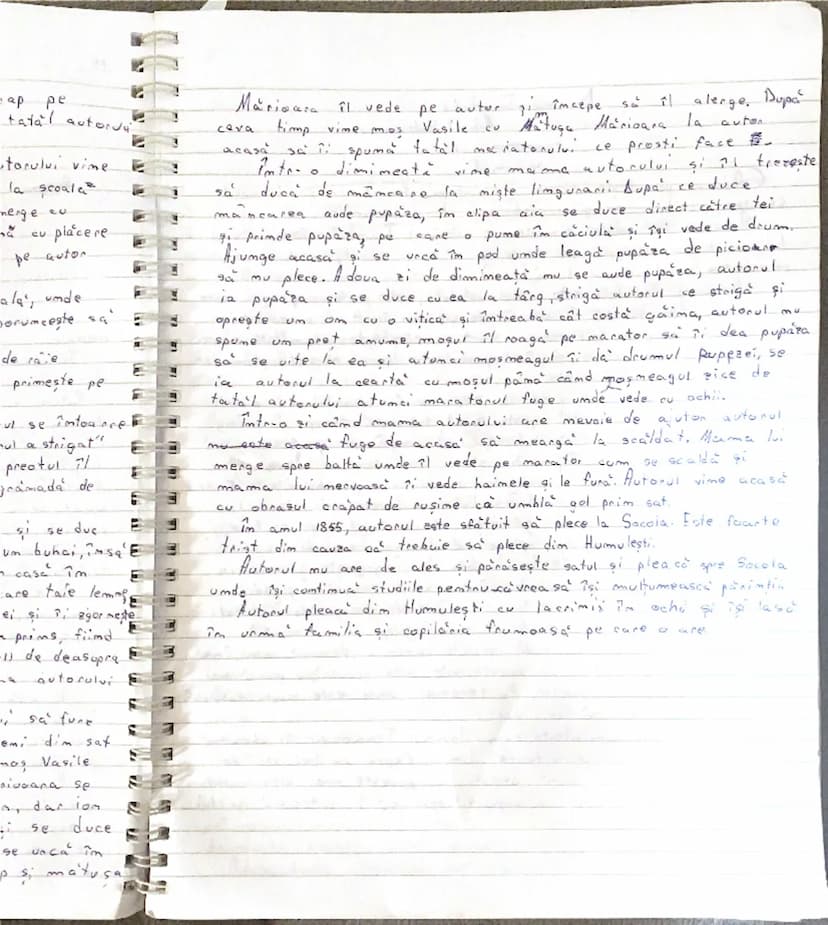 ap pe
tatăl autorului
utorului vine
la școală
merge cu
cu plăcere
pe autor
ală, unde
poruncește să
de răie
primește pe
ul se întoarce
ul a strigat"
preotul îl
grămadă de
și se duc
um buhai, însă
casă în
are taie lemne
ei și îi zgornește
prins, fiind
de deasupra
autorului
să fure
emi din sat
moș Vasile
ioara se
n, dar ion
și se duce
se urcă în
p și mătușa
Mărioara îl vede pe autor și începe să îl alerge. După
ceva timp vine moș Vasile cu Mătușa Mărioara la autor
acasă să îi spună tatăl naratorului ce prosti face
Într-o dimineață vine mama autorului și îl trezește
să ducă de mâncare la niște lingurarii. După ce duce
mâncarea aude pupăza, în clipa aia se duce direct către tei
și prinde pupăza, pe care o pune în căciulă și își vede de drum.
Ajunge acasă și se urcă în pod unde leagă pupăza de picioare
să nu plece. A doua zi de dimineață nu se aude pupăza, autorul
ia pupăza și se duce cu ea la târg, strigă autorul ce strigă și
oprește un om cu o vitică și întreabă cât costă găina, autorul nu
spune un preț anume, moșul îl roagă pe narator să îi dea pupăza
să se uite la ea și atunci moșneagul îi dă drumul Pupezei, se
ia autorul la ceartă cu moșul până când moșneagul zice de
tatăl autorului atunci naratorul fuge unde vede cu ochii.
Într-o zi când mama autorului are nevoie de ajutor autorul
nu este acasă fuge de acasă să meargă la scăldat. Mama lui
merge spre baltă unde îl vede pe narator cum se scaldă și
mama lui nervoasă îi vede hainele și le fură. Autorul vine acasă
cu obrasul crăpat de rușine că umblă gol prin sat.
În anul 1855, autorul este sfătuit să plece la Socola. Este foarte
trist din cauza că trebuie să plece din Humulești.
Autorul nu are de ales și părăsește satul și pleacă spre Socola
unde își continuă studiile pentru că vrea să își mulțumească părinții
Autorul pleacă din Humulești cu lacrimii în ochii și își lasă
în urmă familia și copilăria frumoasă pe care o are